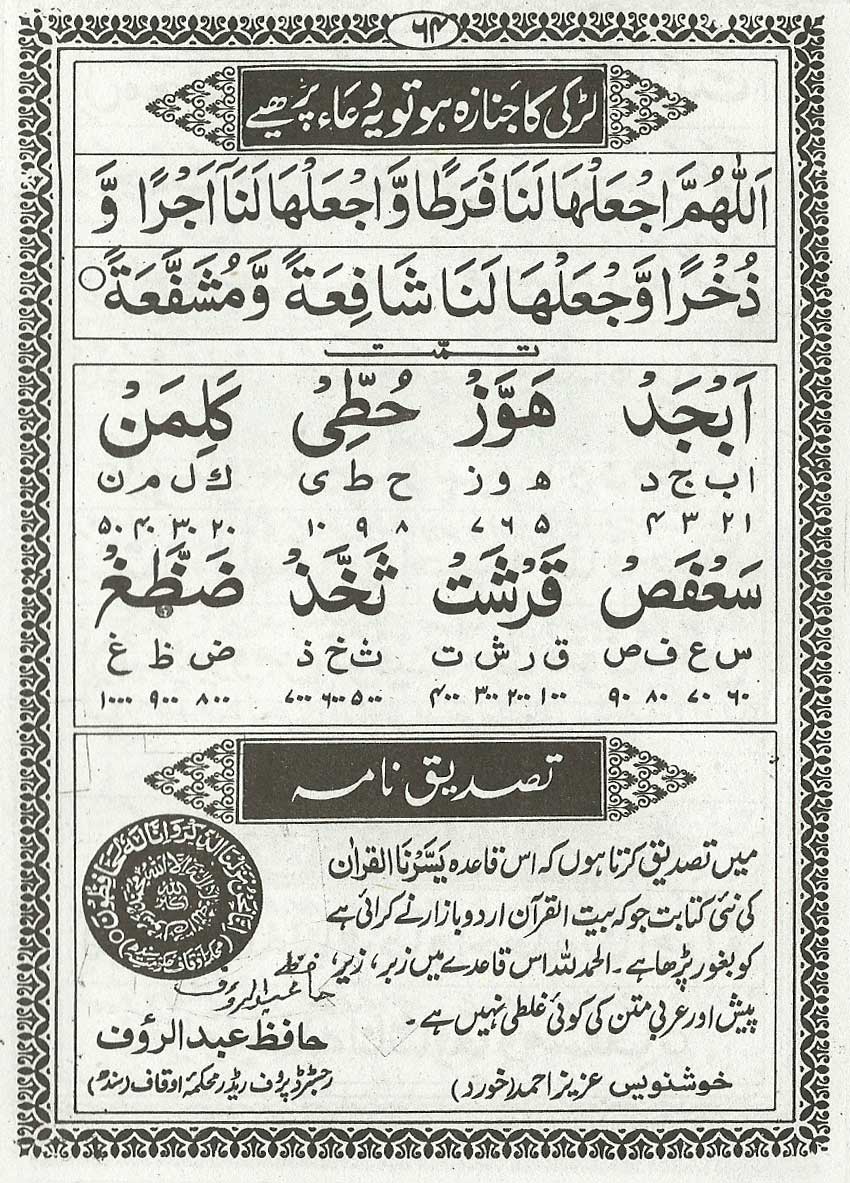 ۶۴
لڑکی کا جنازہ ہو تو یہ دعاء پڑھیے
اَللّٰهُمَّ اجْعَلْهَا لَنَا فَرَطًا وَّ اجْعَلْهَا لَنَآ اَجْرًا وَّ
ذُخْرًا وَّجْعَلْهَا لَنَا شَافِعَةً وَّمُشَفَّعَةً ○
تمّت
اَبْجَدْ هَوَّزْ حُطِّیْ كَلِمَنْ
ا ب ج د ه و ز ح ط ی ك ل م ن
۱ ۲ ۳ ۴ ۵ ۶ ۷ ۸ ۹ ۱۰ ۲۰ ۳۰ ۴۰ ۵۰
سَعْفَصْ قَرْشَتْ ثَخَّذْ ضَظَّغْ
س ع ف ص ق ر ش ت ث خ ذ ض ظ غ
۶۰ ۷۰ ۸۰ ۹۰ ۱۰۰ ۲۰۰ ۳۰۰ ۴۰۰ ۵۰۰ ۶۰۰ ۷۰۰ ۸۰۰ ۹۰۰ ۱۰۰۰
تصدیق نامہ
میں تصدیق کرتا ہوں کہ اس قاعدہ یَسَّرْنَا القران
کی نئی کتابت جو کہ بیت القرآن اردو بازار نے کرائی ہے
کو بغور پڑھا ہے۔ الحمد للہ اس قاعدے میں زبر، زیر،
پیش اور عربی متن کی کوئی غلطی نہیں ہے۔
حافظ عبدالرؤف
حافظ عبدالرؤف
رجسٹرڈ پروف ریڈر محکمۂ اوقاف (سندھ)
خوشنویس عزیز احمد (خورد)